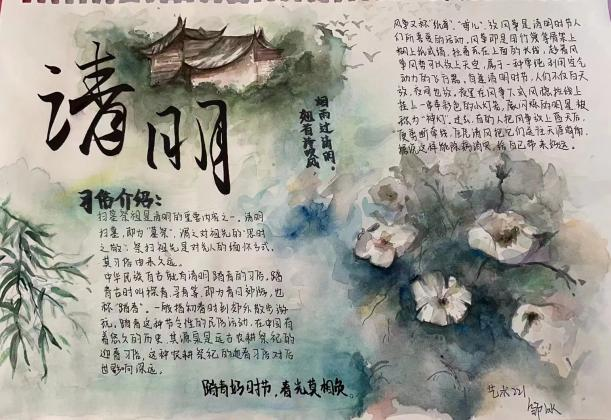 清明
风筝又称“纸鸢”、“鸢儿”,放风筝是清明时节人
们所喜爱的活动,风筝即是用竹篾等骨架上
糊上纸或绢,拉着系在上面的长线,趁着风
势可以放上天空,属于一种单纯利用空气
动力的飞行器,每逢清明时节,人们不仅白天
放,夜间也放。夜里在风筝下或风稳拉线上
挂上一串串彩色的小灯笼,像闪烁的明星,被
称为“神灯”。过去,有的人把风筝放上蓝天后,
便剪断牵线,任凭清风把它们送往天涯海角,
据说这样能除病消灾,给自己带来好运。
烟雨过清明。
习俗介绍:
扫墓祭祖是清明的重要内容之一。清明
扫墓,即为“墓祭”,谓之对祖先的“思时
之敬”。祭扫祖先是对先人的缅怀方式,
其习俗由来久远。
中华民族自古就有清明踏青的习俗,踏
青古时叫探春、寻春等,即为春日郊游,也
称“踏春”。一般指初春时到郊外散步游
玩,踏青这种节令性的民俗活动,在中国有
着悠久的历史,其源泉是远古农耕祭祀的
迎春习俗,这种农耕祭祀的迎春习俗对后
世影响深远。
踏青好时节,春光莫相负。
艺术221